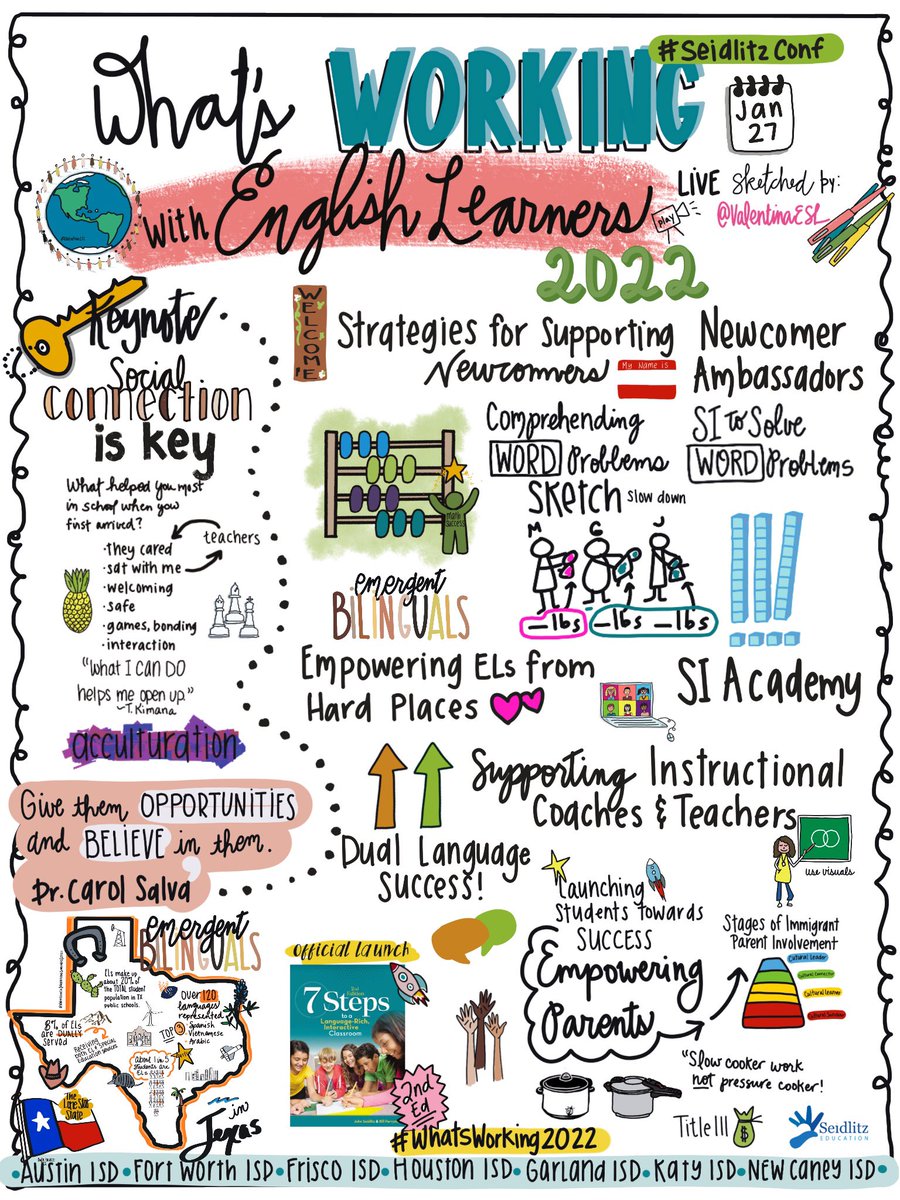 What's WORKING
#SeidlitzConf
Jan
27
with English Learners
play
2022
LIVE sketched by:
@ValentinaESL
Keynote
Social
connection
is key
What helped you most
in school when you
first arrived?
• they cared
• sat with me
• welcoming
• safe
• games, bonding
• interaction
teachers
"What I can DO
helps me open up."
~T. Kimana
acculturation
Give them OPPORTUNITIES
and BELIEVE in them.
Dr. Carol Salva
WELCOME
Strategies for Supporting
Newcomers
My Name is
Newcomer
Ambassadors
math
success
Comprehending
WORD Problems
SKETCH slow down
M G J
—lbs —lbs —lbs
SI to Solve
WORD Problems
emergent
BILINGUALS
Empowering ELs from
Hard Places
SI Academy
Dual Language
SUCCESS!
Supporting Instructional
Coaches & Teachers
use visuals
Launching
Students Towards
SUCCESS
Empowering
Parents
Stages of Immigrant
Parent Involvement
Cultural Leader
Cultural Connector
Cultural Learner
Cultural Survivor
"Slow cooker work
not pressure cooker!
Title III
Seidlitz
EDUCATION
emergent
BILINGUALS
ELs make up
about 20% of
the TOTAL student
population in TX
public schools.
Over 120
languages
represented
TOP 3
Spanish
Vietnamese
Arabic
8% of ELs
are DUALLY
served
Receiving
both EL & Special
Education services
About 1 in 5
students are
ELs
The
Lone Star
State
in
Texas
Official Launch
2nd
Edition
7 Steps
to a
Language-Rich,
Interactive
Classroom
2nd
Ed
#WhatsWorking2022
Austin ISD • Fort Worth ISD • Frisco ISD • Houston ISD • Garland ISD • Katy ISD • New Caney ISD •